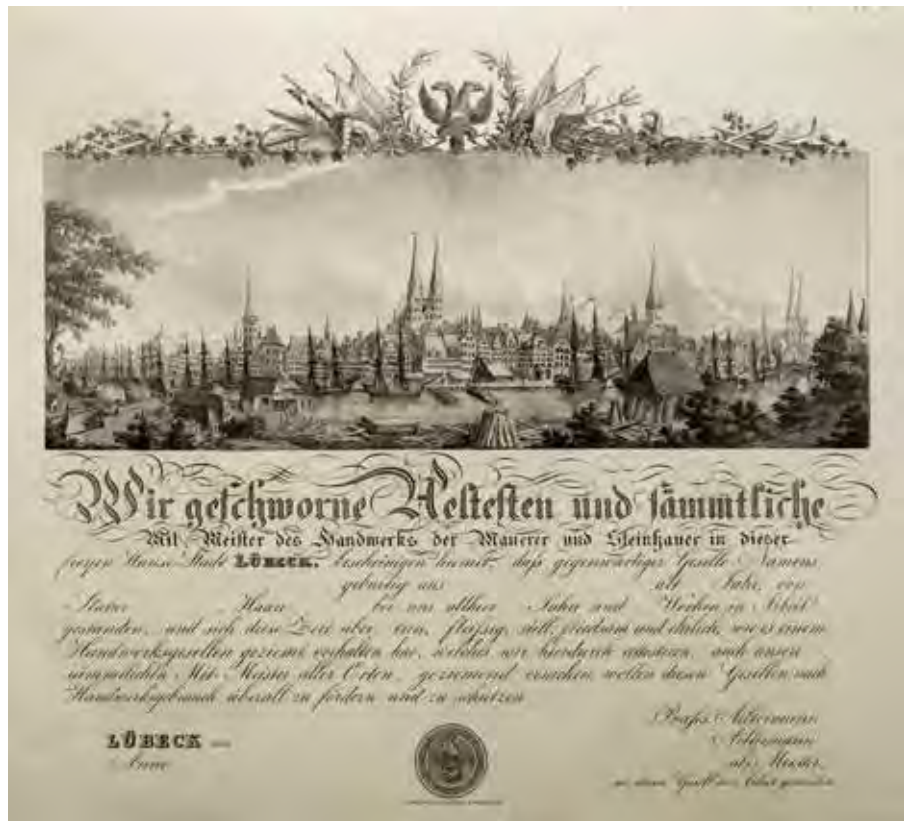 Wir geschworne Aeltesten und sämmtliche
Mit-Meister des Handwerks der Maurer und Steinhauer in dieser
freyen Hanse-Stadt LÜBECK, bescheinigen hiemit, daß gegenwärtiger Geselle Namens
gebürtig aus alt Jahr, von
Statur Haare bei uns allhier Jahre und Wochen in Arbeit
gestanden, und sich diese Zeit über treu, fleißig, still, friedsam und ehrlich, wie es einem
Handwerksgesellen geziemt verhalten hat, welches wir hierdurch attestiren, auch unsere
Mit-Meister aller Orten, geziemend ersuchen wollen diesen Gesellen nach
Handwerksgebrauch überall zu fördern und zu schützen
Aeltermann
LÜBECK Aeltermann
Anno als Meister